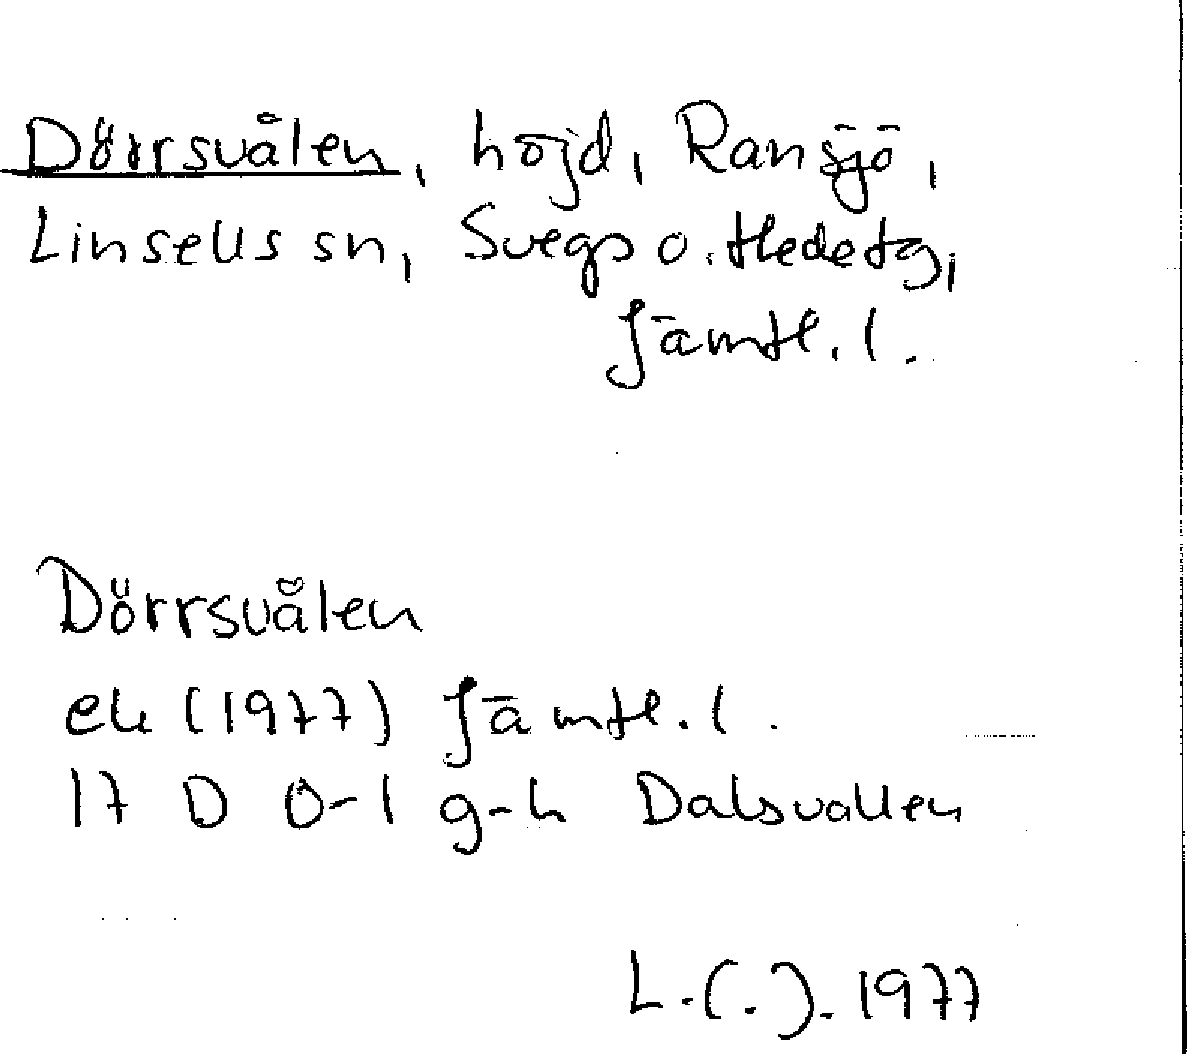 Dörrsvålen, höjd, Ransjö,
Linsells sn, Svegs o. Hede tg,
Jämtl. l.
Dörrsvålen
ek (1977) Jämtl. l.
17 D 0-1 g-h Dalsvallen
L.(.). 1977